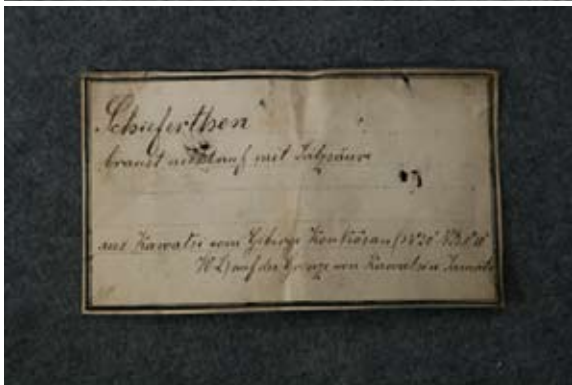 Schieferthon
braust nicht auf mit Salzsäure
aus Kawatsi vom Gebirge Konkosan
auf der Grenze von Kawatsi u. Jamato